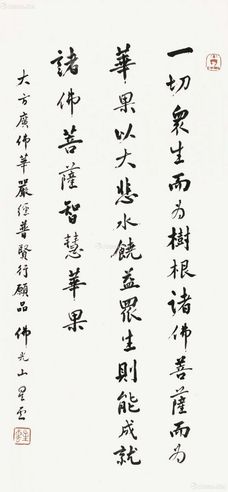 一切眾生而為樹根諸佛菩薩而為
華果以大悲水饒益眾生則能成就
諸佛菩薩智慧華果
大方廣佛華嚴經普賢行願品 佛光山 星雲